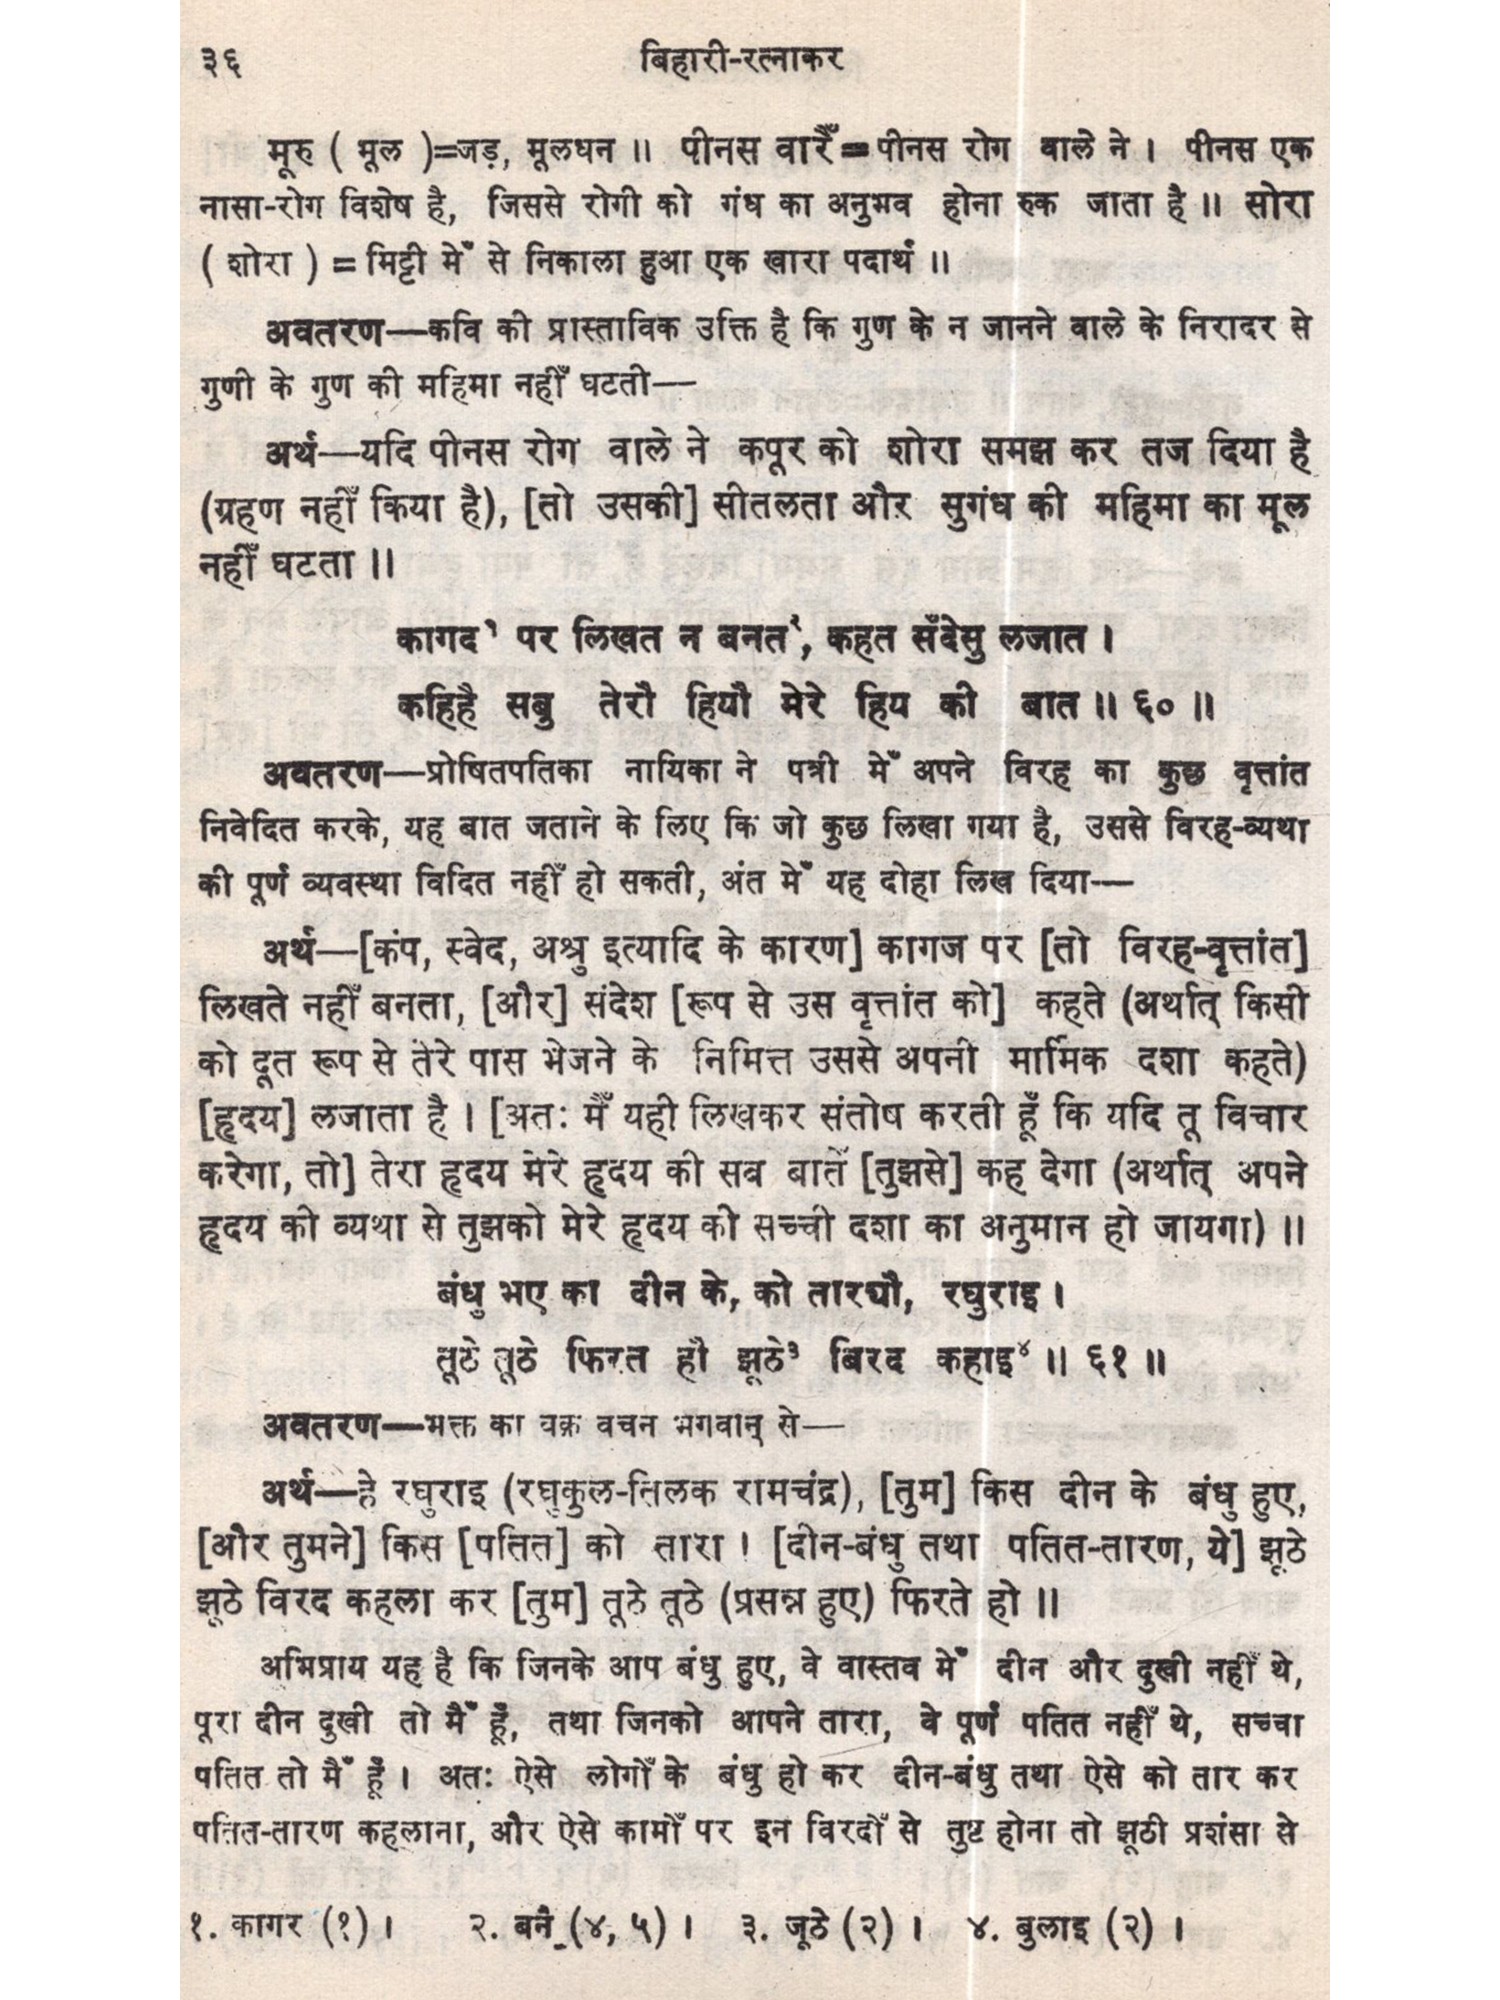 ३६ बिहारी-रत्नाकर
मूरु ( मूल )=जड़, मूलधन ॥ पीनस वारैँ=पीनस रोग वाले ने । पीनस एक
नासा-रोग विशेष है, जिससे रोगी को गंध का अनुभव होना रुक जाता है ॥ सोरा
( शोरा ) = मिट्टी मेँ से निकाला हुआ एक खारा पदार्थ ॥
अवतरण—कवि की प्रास्ताविक उक्ति है कि गुण के न जानने वाले के निरादर से
गुणी के गुण की महिमा नहीँ घटती—
अर्थ—यदि पीनस रोग वाले ने कपूर को शोरा समझ कर तज दिया है
(ग्रहण नहीँ किया है), [तो उसकी] सीतलता और सुगंध की महिमा का मूल
नहीँ घटता ॥
कागद१ पर लिखत न बनत२, कहत सँदेसु लजात ।
कहिहै सबु तेरौ हियौ मेरे हिय की बात ॥ ६० ॥
अवतरण—प्रोषितपतिका नायिका ने पत्री मेँ अपने विरह का कुछ वृत्तांत
निवेदित करके, यह बात जताने के लिए कि जो कुछ लिखा गया है, उससे विरह-व्यथा
की पूर्ण व्यवस्था विदित नहीँ हो सकती, अंत मेँ यह दोहा लिख दिया—
अर्थ—[कंप, स्वेद, अश्रु इत्यादि के कारण] कागज पर [तो विरह-वृत्तांत]
लिखते नहीँ बनता, [और] संदेश [रूप से उस वृत्तांत को] कहते (अर्थात् किसी
को दूत रूप से तेरे पास भेजने के निमित्त उससे अपनी मार्मिक दशा कहते)
[हृदय] लजाता है । [अतः मैँ यही लिखकर संतोष करती हूँ कि यदि तू विचार
करेगा, तो] तेरा हृदय मेरे हृदय की सब बातेँ [तुझसे] कह देगा (अर्थात् अपने
हृदय की व्यथा से तुझको मेरे हृदय की सच्ची दशा का अनुमान हो जायगा) ॥
बंधु भए का दीन के, को तारयौ, रघुराइ ।
तूठे तूठे फिरत हौ झूठे३ बिरद कहाइ४ ॥ ६१ ॥
अवतरण—भक्त का वक्र वचन भगवान् से—
अर्थ—हे रघुराइ (रघुकुल-तिलक रामचंद्र), [तुम] किस दीन के बंधु हुए,
[और तुमने] किस [पतित] को तारा ! [दीन-बंधु तथा पतित-तारण, ये] झूठे
झूठे विरद कहला कर [तुम] तूठे तूठे (प्रसन्न हुए) फिरते हो ॥
अभिप्राय यह है कि जिनके आप बंधु हुए, वे वास्तव मेँ दीन और दुखी नहीँ थे,
पूरा दीन दुखी तो मैँ हूँ, तथा जिनको आपने तारा, वे पूर्ण पतित नहीँ थे, सच्चा
पतित तो मैँ हूँ । अतः ऐसे लोगोँ के बंधु हो कर दीन-बंधु तथा ऐसे को तार कर
पतित-तारण कहलाना, और ऐसे कामोँ पर इन विरदोँ से तुष्ट होना तो झूठी प्रशंसा से
१. कागर (१) । २. बनै (४, ५) । ३. जूठे (२) । ४. बुलाइ (२) ।